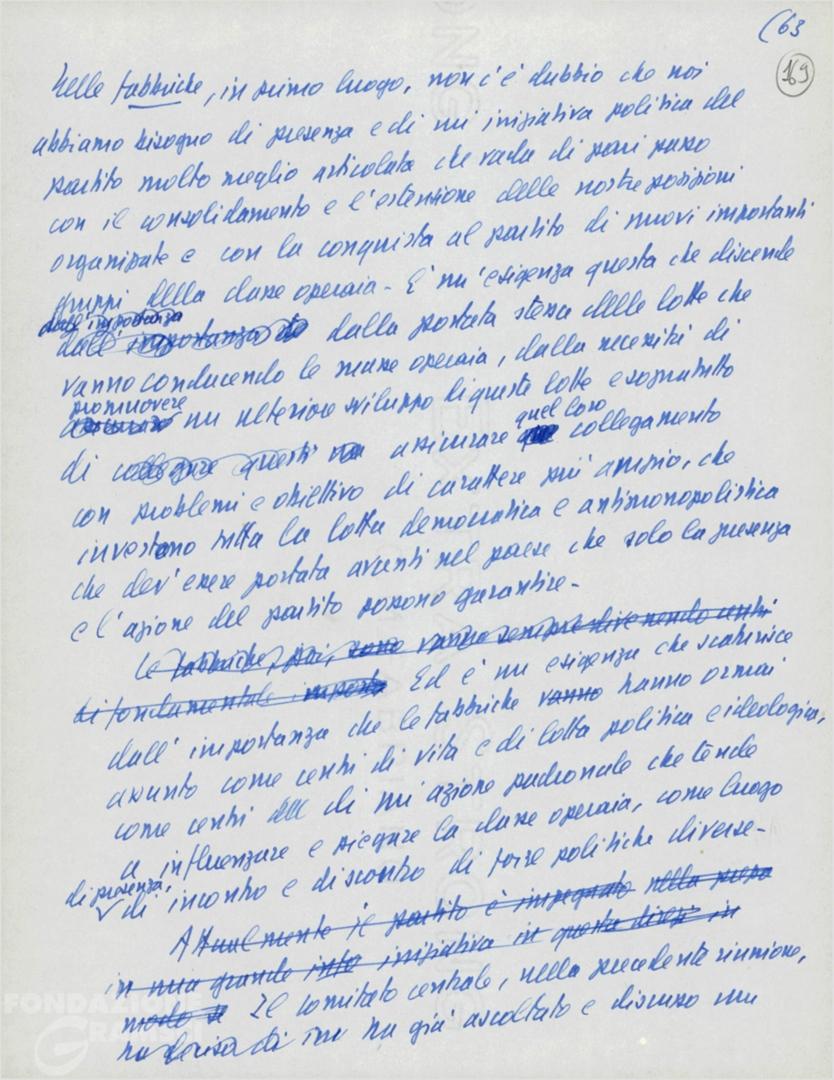 (63
169
Nelle fabbriche, in primo luogo, non c'è dubbio che noi
abbiamo bisogno di presenza e di un'iniziativa politica del
partito molto meglio articolata che vada di pari passo
con il consolidamento e l'estensione delle nostre posizioni
organizzate e con la conquista al partito di nuovi importanti
gruppi della classe operaia - È un'esigenza questa che discende
dall'importanza
dall'importanza dalla portata stessa delle lotte che
vanno conducendo le masse operaie, dalla necessità di
promuovere
assicurare un ulteriore sviluppo di queste lotte e soprattutto
quel loro
di collegare questi assicurare collegamento
con problemi e obiettivo di carattere più ampio, che
investono tutta la lotta democratica e antimonopolistica
che dev'essere portata avanti nel paese che solo la presenza
e l'azione del partito possono garantire -
Le fabbriche, poi, sono vanno sempre divenendo centri
di fondamentale importa Ed è un esigenza che scaturisce
dall'importanza che le fabbriche vanno hanno ormai
assunto come centri di vita e di lotta politica e ideologica,
come centri di un'azione padronale che tende
a influenzare e piegare la classe operaia, come luogo
di presenza,
di incontro e di scontro di forze politiche diverse -
Attualmente il partito è impegnato nella
in una grande iniziativa in questa direzi in
modo Il comitato centrale, nella precedente riunione,
ha deciso di ha già ascoltato e discusso un
FONDAZIONE
GRAMSCI